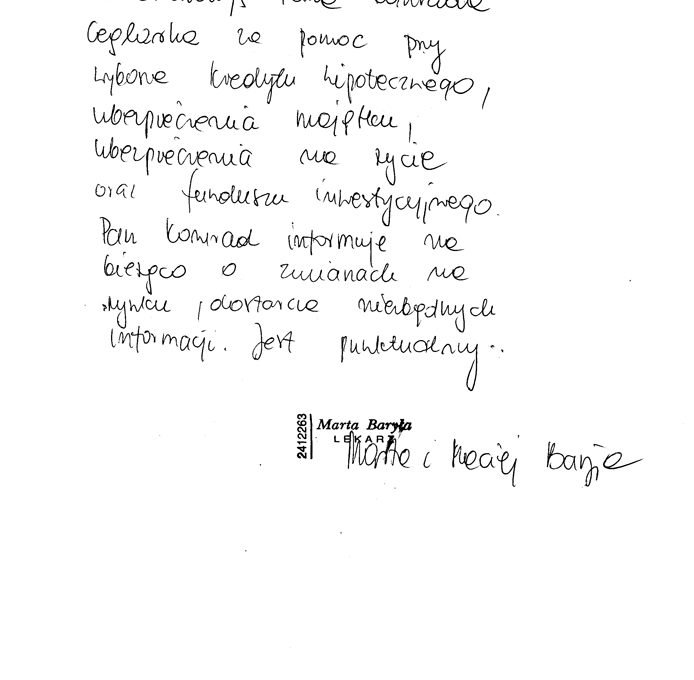 Pana Konrada
Ceglarka za pomoc przy
wyborze kredytu hipotecznego,
ubezpieczenia majątku,
ubezpieczenia na życie
oraz funduszu inwestycyjnego.
Pan Konrad informuje na
bieżąco o zmianach na
rynku, dostarcza niezbędnych
informacji. Jest punktualny..
2412263
Marta Baryła
LEKARZ
Marta i Maciej Baryła